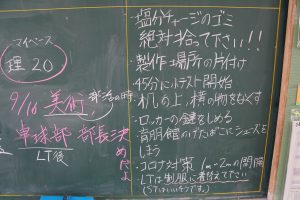 マイペース
理20
9/16 美術
部活の時
卓球部 部長決
めだよ
LT後
・塩分チャージのゴミ
絶対拾って下さい!!
・製作場所の片付け
・45分に小テスト開始
・机の上、横の物をなくす
・ロッカーの鍵をしめる
・育朋館のげたばこにシューズを
しまう
・コロナ対策 1m~2mの間隔
・LTは制服に着替えて下さい